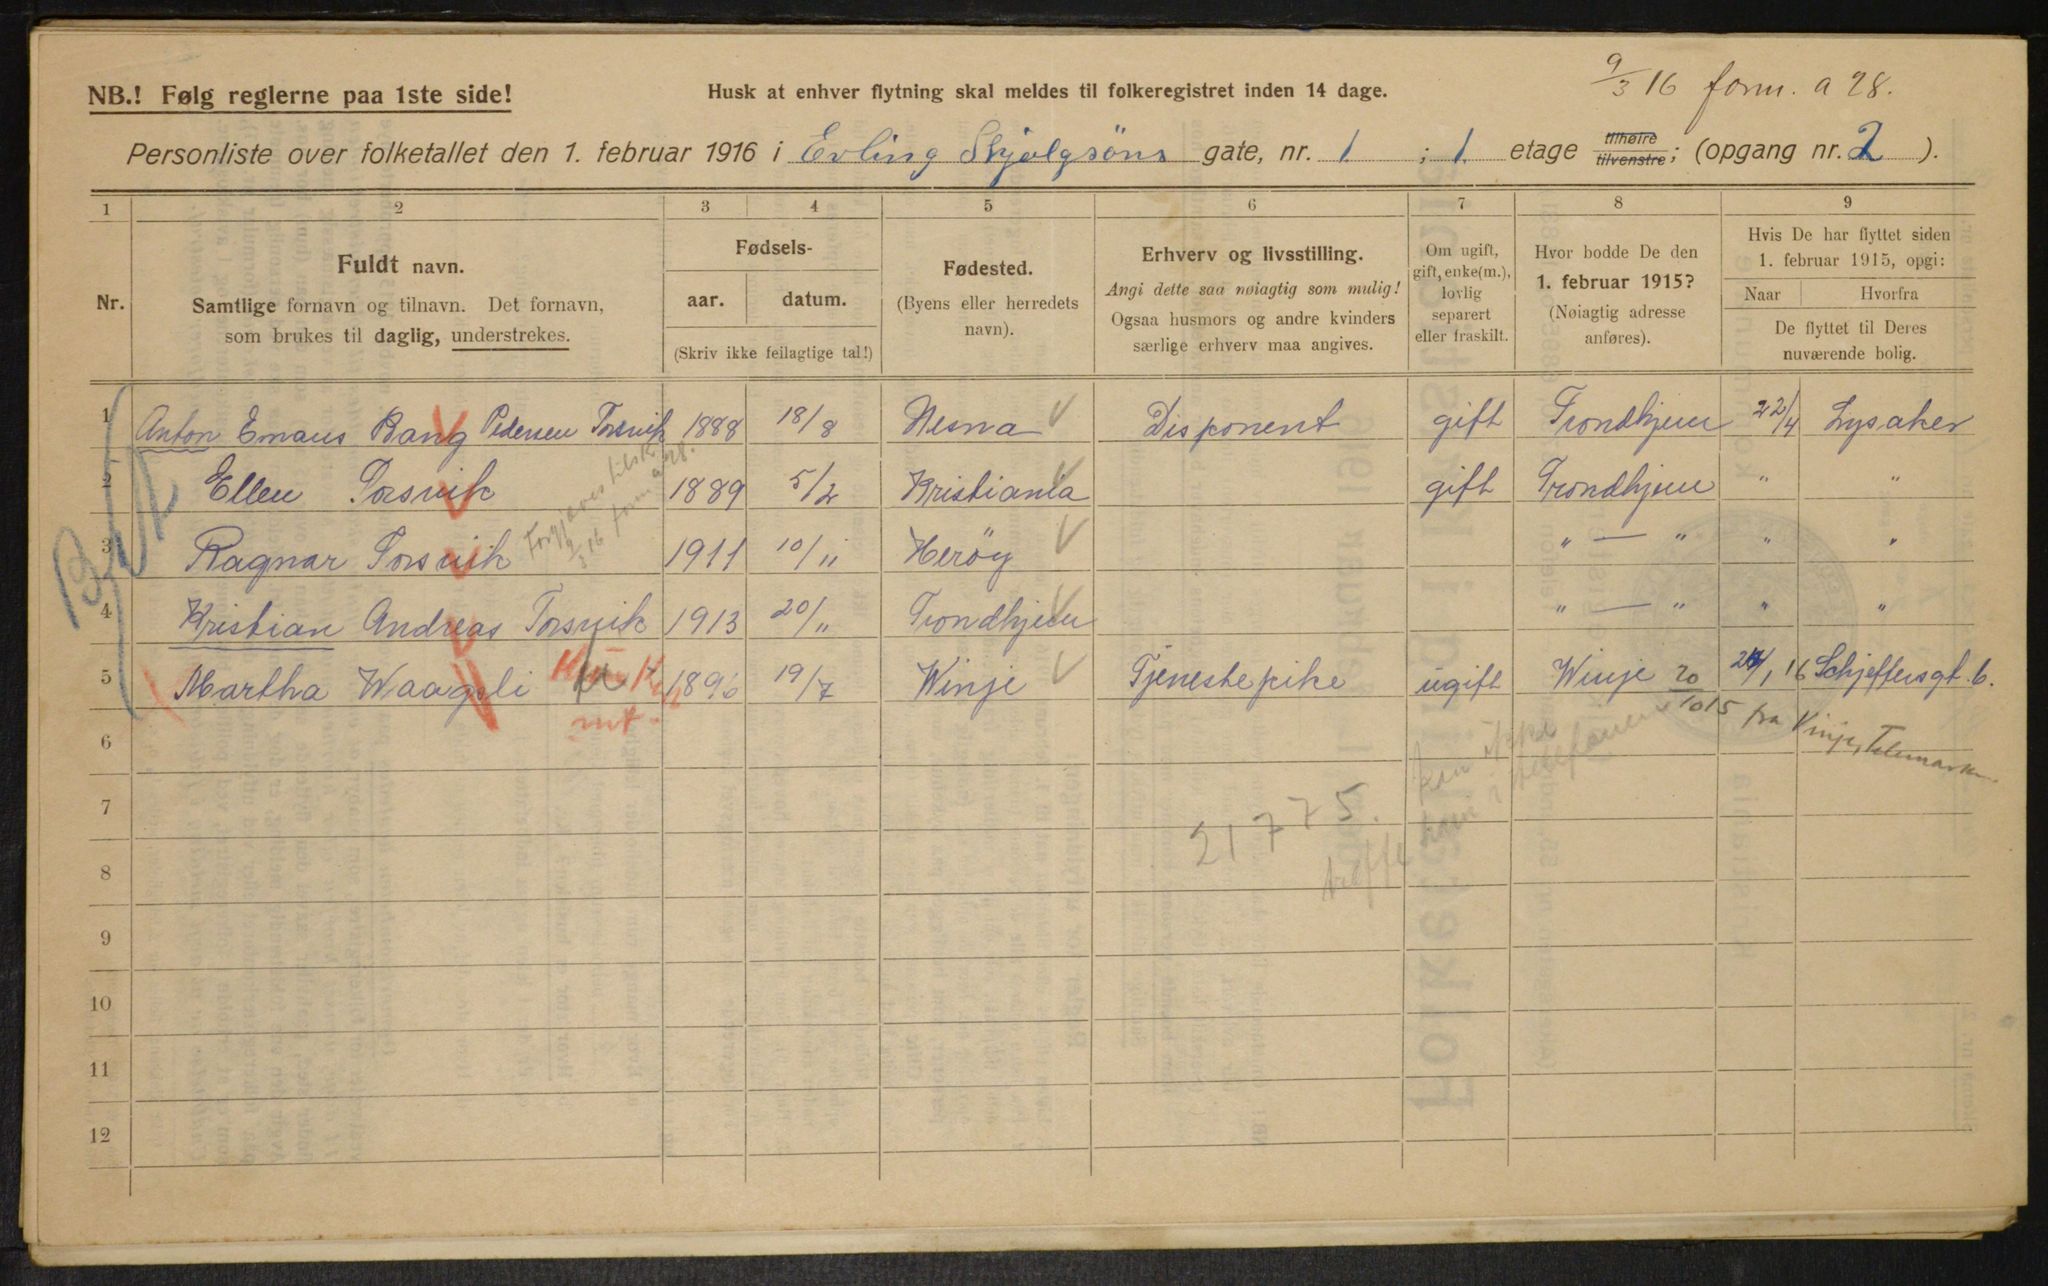 9/3 16 form. a 28.
NB.! Følg reglerne paa 1ste side!
Husk at enhver flytning skal meldes til folkeregistret inden 14 dage.
Personliste over folketallet den 1. februar 1916 i Erling Skjalgsöns gate, nr. 1 ; 1. etage tilhøire tilvenstre; (opgang nr. 2 ).
1 2 3 4 5 6 7 8 9
Nr.
Fuldt navn.
Samtlige fornavn og tilnavn. Det fornavn,
som brukes til daglig, understrekes.
Fødsels-
aar. datum.
(Skriv ikke feilagtige tal!)
Fødested.
(Byens eller herredets
navn).
Erhverv og livsstilling.
Angi dette saa nøiagtig som mulig!
Ogsaa husmors og andre kvinders
særlige erhverv maa angives.
Om ugift,
gift, enke(m.),
lovlig
separert
eller fraskilt.
Hvor bodde De den
1. februar 1915?
(Nøiagtig adresse
anføres).
Hvis De har flyttet siden
1. februar 1915, opgi:
Naar Hvorfra
De flyttet til Deres
nuværende bolig.
1 Anton Emaus Bang Pedersen Torsvik 1888 18/8 Nesna Disponent gift Trondhjem 22/4 Lysaker
2 Ellen Torsvik 1889 5/2 Kristiania gift Trondhjem " "
3 Ragnar Torsvik 1911 10/11 Herøy " — " " "
4 Kristian Andreas Torsvik 1913 20/11 Trondhjem " — " " "
5 Martha Waagsli 1896 19/7 Winje Tjenestepike ugift Winje 16 Schjeftersgt. 6.
20/10 15 fra Vinje, Telemarken
6
7
21775.
8
9
10
11
12